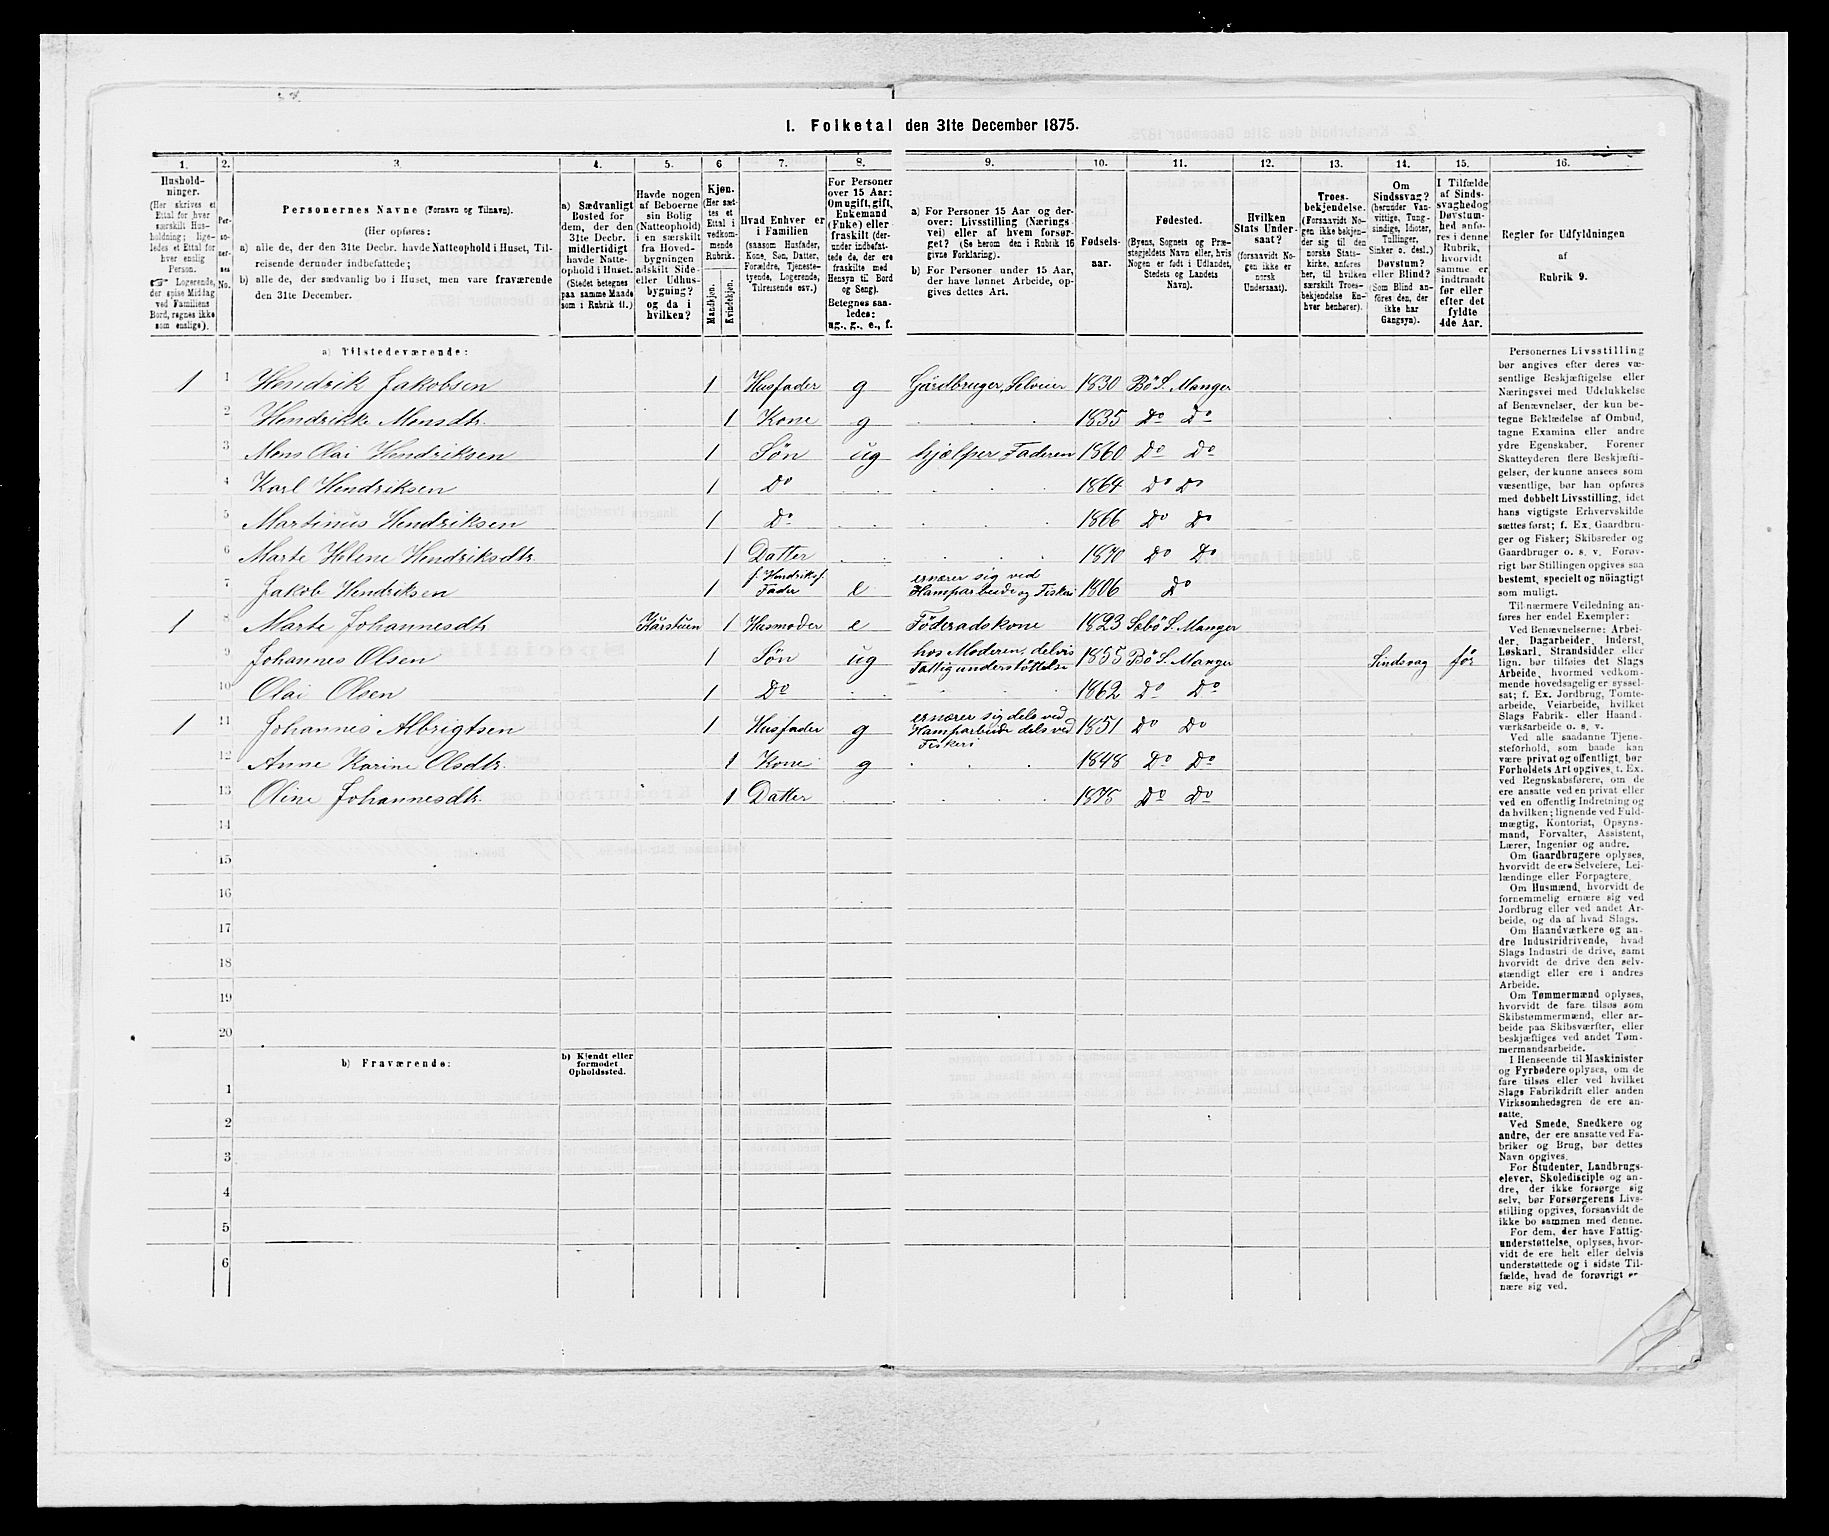 I. Folketal den 31te December 1875.
1. 2. 3. 4. 5. 6 7. 8. 9. 10. 11. 12. 13. 14. 15. 16.
Hushold-
ninger.
(Her skrives et
Ettal for hver
særskilt Hus-
holdning; lige-
ledes et Ettal for
hver enslig
Person.
☞ Logerende,
der spise Middag
ved Familiens
Bord, regnes ikke
som enslige).
Per-
so-
ner-
nes
No.
Personernes Navne (Fornavn og Tilnavn).
(Her opføres:
a) alle de, der den 31te Decbr. havde Natteophold i Huset, Til-
reisende derunder indbefattede;
b) alle de, der sædvanlig bo i Huset, men vare fraværende
den 31te December.
a) Sædvanligt
Bosted for
dem, der den
31te Decbr.
midlertidigt
havde Natte-
ophold i Huset.
(Stedet betegnes
paa samme Maade
som i Rubrik 11.)
Havde nogen
af Beboerne
sin Bolig
(Natteophold)
i en særskilt
fra Hoved-
bygningen
adskilt Side-
eller Udhus-
bygning?
og da i
hvilken?
Kjøn.
(Her sæt-
tes et
Ettal i
vedkom-
mende
Rubrik.
Mandkjøn.
Kvindekjøn.
Hvad Enhver er
i Familien
(saasom Husfader,
Kone, Søn, Datter,
Forældre, Tjeneste-
tyende, Logerende,
Tilreisende osv.)
For Personer
over 15 Aar:
Om ugift, gift,
Enkemand
(Enke) eller
fraskilt (der-
under indbefat-
tede de, der ere
fraskilte med
Hensyn til Bord
og Seng).
Betegnes saa-
ledes:
ug., g., e., f.
a) For Personer 15 Aar og der-
over: Livsstilling (Nærings-
vei) eller af hvem forsør-
get? (Se herom den i Rubrik 16
givne Forklaring).
b) For Personer under 15 Aar,
der have lønnet Arbeide, op-
gives dettes Art.
Fødsels-
aar.
Fødested.
(Byens, Sognets og Præ-
stegjeldets Navn eller, hvis
Nogen er født i Udlandet,
Stedets og Landets
Navn).
Hvilken
Stats Under-
saat?
(forsaavidt No-
gen ikke er
norsk
Undersaat).
Troes-
bekjendelse.
(Forsaavidt No-
gen ikke bekjen-
der sig til den
norske Stats-
kirke, anføres
her, til hvilken
særskilt Troes-
bekjendelse En-
hver henhører).
Om
Sindssvag?
(herunder Van-
vittige, Tung-
sindige, Idioter,
Tullinger,
Sinker o. desl.)
Døvstum?
eller Blind?
(Som Blind an-
føres den, der
ikke har
Gangsyn).
I Tilfælde
af Sinds-
svaghed og
Døvstum-
hed anfø-
res i denne
Rubrik,
hvorvidt
samme er
indtraadt
før eller
efter det
fyldte
4de Aar.
Regler for Udfyldningen
af
Rubrik 9.
a) Tilstedeværende:
1 1 Hendrik Jakobsen 1 Husfader g Gårdbruger, Selveier 1830 Bö S. Manger
2 Hendrikke Monsdtr. 1 Kone g 1835 Do Do
3 Mons Olai Hendriksen 1 Søn ug hjælper Faderen 1860 Do Do
4 Karl Hendriksen 1 Do 1864 Do Do
5 Martinus Hendriksen 1 Do 1866 Do Do
6 Marte Helene Hendriksdtr. 1 Datter 1870 Do Do
7 Jakob Hendriksen 1 f. Hendriks f. Fader e ernærer sig ved Hamparbeide og Fiskeri 1806 Do
1 8 Marte Johannesdtr Kårstuen 1 Husmoder e Föderadskone 1823 Sæbö S. Manger
9 Johannes Olsen 1 Søn ug hos Moderen, delvis Fattigunderstöttelse 1855 Bö S. Manger Sindsvag før
10 Olai Olsen 1 Do 1862 Do Do
1 11 Johannes Albrigtsen 1 Husfader g ernærer sig dels ved Hamparbeide dels ved Fiskeri 1851 Do Do
12 Anne Karine Olsdtr. 1 Kone g 1848 Do Do
13 Oline Johannesdtr. 1 Datter 1875 Do do
14
15
16
17
18
19
20
b) Fraværende:
b) Kjendt eller
formodet
Opholdssted.
1
2
3
4
5
6
Personernes Livsstilling
bør angives efter deres væ-
sentlige Beskjæftigelse eller
Næringsvei med Udelukkelse
af Benævnelser, der kun be-
tegne Beklædelse af Ombud,
tagne Examina eller andre
ydre Egenskaber. Forener
Skatteyderen flere Beskjæfti-
gelser, der kunne ansees som
væsentlige, bør han opføres
med dobbelt Livsstilling, idet
hans vigtigste Erhvervskilde
sættes først; f. Ex. Gaardbru-
ger og Fisker; Skibsreder og
Gaardbruger o. s. v. Forøv-
rigt bør Stillingen opgives saa
bestemt, specielt og nöiagtigt
som muligt.
Til nærmere Veiledning an-
føres her endel Exempler:
Ved Benævnelserne: Arbei-
der, Dagarbeider, Inderst,
Løskarl, Strandsidder eller
lign. bør tilføies det Slags
Arbeide, hvormed vedkom-
mende hovedsagelig er syssel-
sat; f. Ex. Jordbrug, Tomte-
arbeide, Veiarbeide, hvilket
Slags Fabrik- eller Haand-
værksarbeide o. s. v.
Ved alle saadanne Tjene-
steforhold, som baade kan
være privat og offentligt, bør
Forholdets Art opgives, t. Ex.
ved Regnskabsførere, om de
ere ansatte ved en privat eller
ved en offentlig Indretning og
da hvilken; lignende ved Fuld-
mægtig, Kontorist, Opsyns-
mand, Forvalter, Assistent,
Lærer, Ingeniør og andre.
Om Gaardbrugere oplyses,
hvorvidt de ere Selveiere, Lei-
lændinge eller Forpagtere.
Om Husmænd, hvorvidt de
fornemmelig ernære sig ved
Jordbrug eller ved andet Ar-
beide, og da af hvad Slags.
Om Haandværkere og an-
dre Industridrivende, hvad
Slags Industri de drive, samt
hvorvidt de drive den selv-
stændigt eller ere i andres
Arbeide.
Om Tømmermænd oplyses,
hvorvidt de fare tilsøs som
Skibstømmermænd, eller ar-
beide paa Skibsværfter, eller
beskjæftiges ved andet Tøm-
mermandsarbeide.
I Henseende til Maskinister
og Fyrbødere oplyses, om de
fare tilsøs eller ved hvilket
Slags Fabrikdrift eller anden
Virksomhedsgren de ere an-
satte.
Ved Smede, Snedkere og
andre, der ere ansatte ved Fa-
briker og Brug, bør dettes
Navn opgives.
For Studenter, Landbrugs-
elever, Skoledisciple og an-
dre, der ikke forsørge sig
selv, bør Forsørgerens Livs-
stilling opgives, forsaavidt de
ikke bo sammen med denne.
For dem, der have Fattig-
understøttelse, oplyses, hvor-
vidt de ere helt eller delvis
understøttede og i sidste Til-
fælde, hvad de forøvrigt er-
nære sig ved.